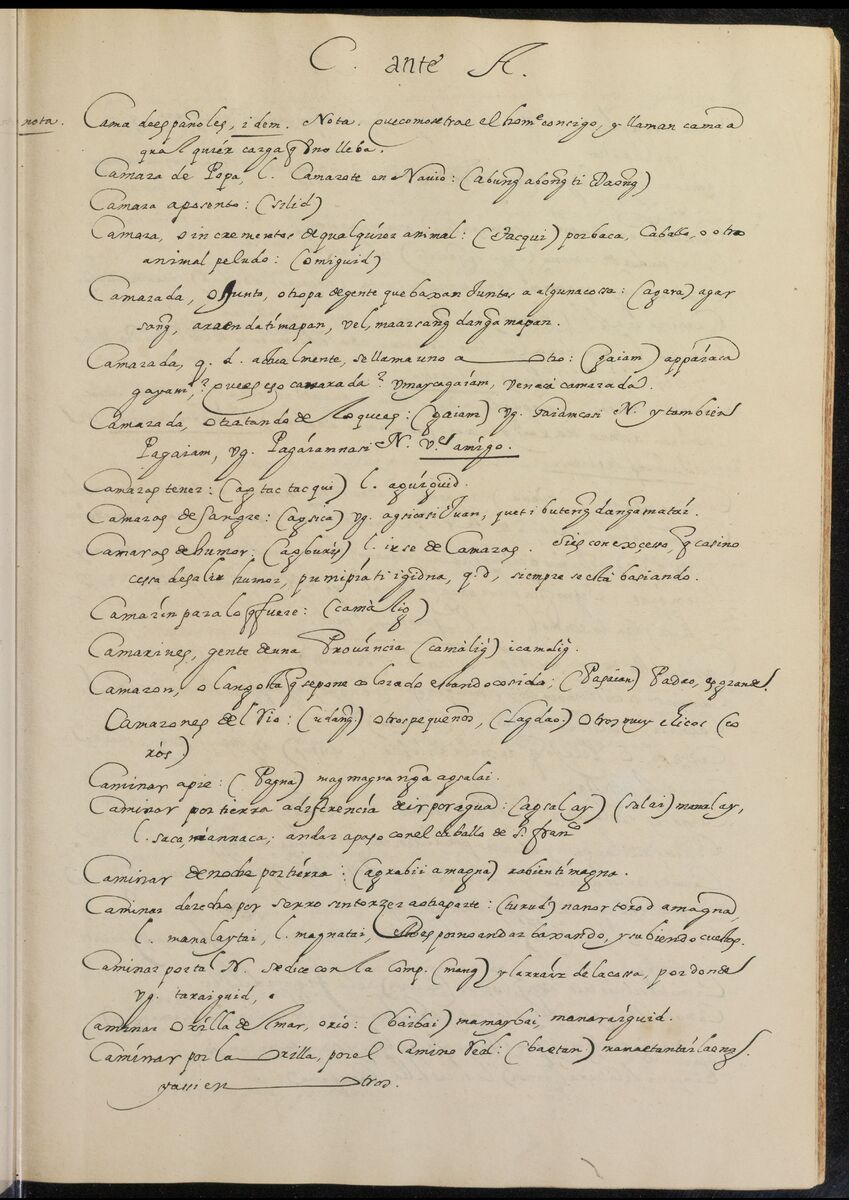 C. ante A.
nota.
Cama de españoles, idem. Nota. que como se trae el hom.e consigo, y llaman cama a
qualquiér carga q no lleba.
Camara de Popa, l. Camarote en Navio: (abung abong ti Daong)
Camara aposento: (silid)
Camara, o in crementos de qualquiér animal: (Tacqui) por baca, Caballo, o otro
animal peludo: (omiguid)
Camarada, o Junta, o tropa de gente que baxan Juntas a alguna cossa: (agara) agar
sang, araen da timapan, vel, maarsang danga mapan.
Camarada, q. d. actualmente, se llama uno a otro: (gaiam) appáraca
gayam,? que es eso camarada? vmaycagaiam, ven aca camarada.
Camarada, o tratando de lo que es: (gaiam) vg. Gaiamcosi N. y tambien
Pagaiam, vg. Pagáiamnasi N. v.el amígo.
Camaras tener: (ag tac tac qui) l. aguirguid.
Camaras de sangre: (agsica) vg. agsicasi Juan, quet i buteng danga matai.
Camaras de humor: (agburis) l. irse de Camaras. si es con excesso, q casi no
cessa de salir humor, pumipiati igidna, q.d, siempre se está basiando.
Camarín para lo q fuere: (camálig)
Camarines, gente de una Província (camálig) icamalig.
Camaron, o langosta q se pone colorado estando cosida; (Pasaian) Padao, es grande.
Camarones del Rio: (udang.) otros pequenos, (Lagdao) otros muy chicos (co
ros)
Caminar a pie: (Pagna) magmagna nga agsalai.
Caminar por tierra a diferencia de ir por agua: (agsalay) (salai) manalay,
l. saca miannaca; andar a paso con el caballo de S. Fran.co
Caminar de noche por tiérra: (agrabii amagna) rabientimagna.
Caminar derecho por serro sin torzer a otra parte: (turud) nanortorod amagna,
l. manalaytai, l. magnatai, esto es por no andar baxando, y subiendo cuestas.
Caminar por tal N. se dice con la Comp. (mang) y la rraiz de la cossa, por donde
vg. taraiguid,
Caminar orilla del mar, o rio: (báibai) mamaybai, manaraiguid.
Camínar por la orilla, por el Camino Real: (baetan)
y assi en otros.